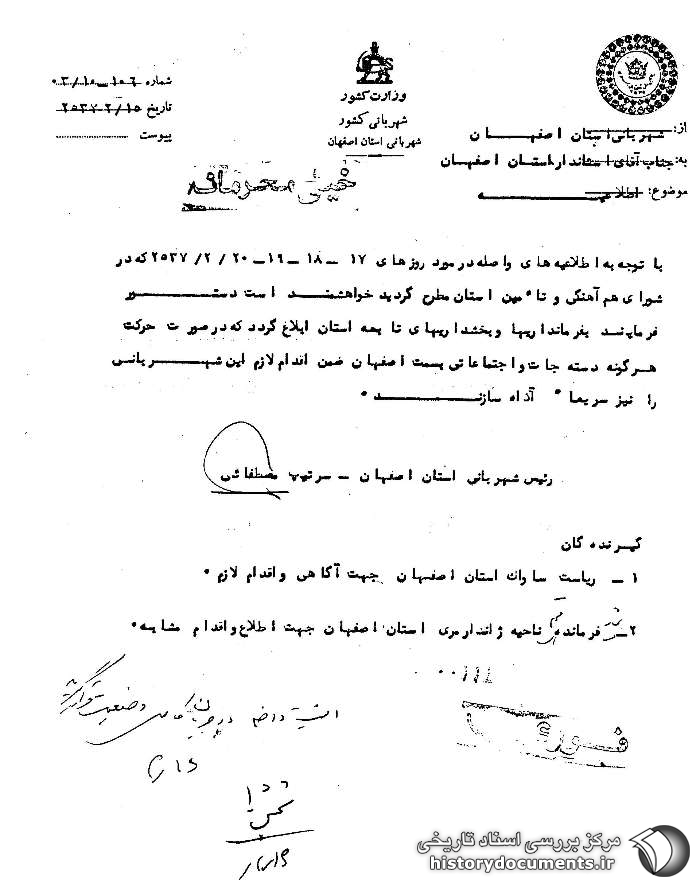 وزارت کشور
شهربانی کشور
شهربانی استان اصفهان
شماره ۱۰۶-۰۳/۱۰
تاریخ ۲۵۳۷/۲/۱۵
پیوست
از: شهربانی استان اصفهان
به: جناب آقای استاندار استان اصفهان
موضوع: اطلاعیه
خیلی محرمانه
با توجه به اطلاعیه های واصله در مورد روزهای ۱۷ – ۱۸ – ۱۹ – ۲۰ / ۲/ ۲۵۳۷ که در
شورای هم آهنگی و تامین استان مطرح گردید خواهشمند است دستور
فرمایند بفرمانداریها و بخشداریهای تابعه استان ابلاغ گردد که در صورت حرکت
هرگونه دسته جات و اجتماعاتی بسمت اصفهان ضمن اقدام لازم این شهربانی
را نیز سریعا آگاه سازند .
رئیس شهربانی استان اصفهان – سرتیپ مصطفائی
گیرندگان
۱ – ریاست ساواک استان اصفهان جهت آگاهی و اقدام لازم .
۲ – فرمانده ناحیه ژاندارمری استان اصفهان جهت اطلاع و اقدام مشابه .
فوری
مرکز بررسی اسناد تاریخی
historydocuments.ir